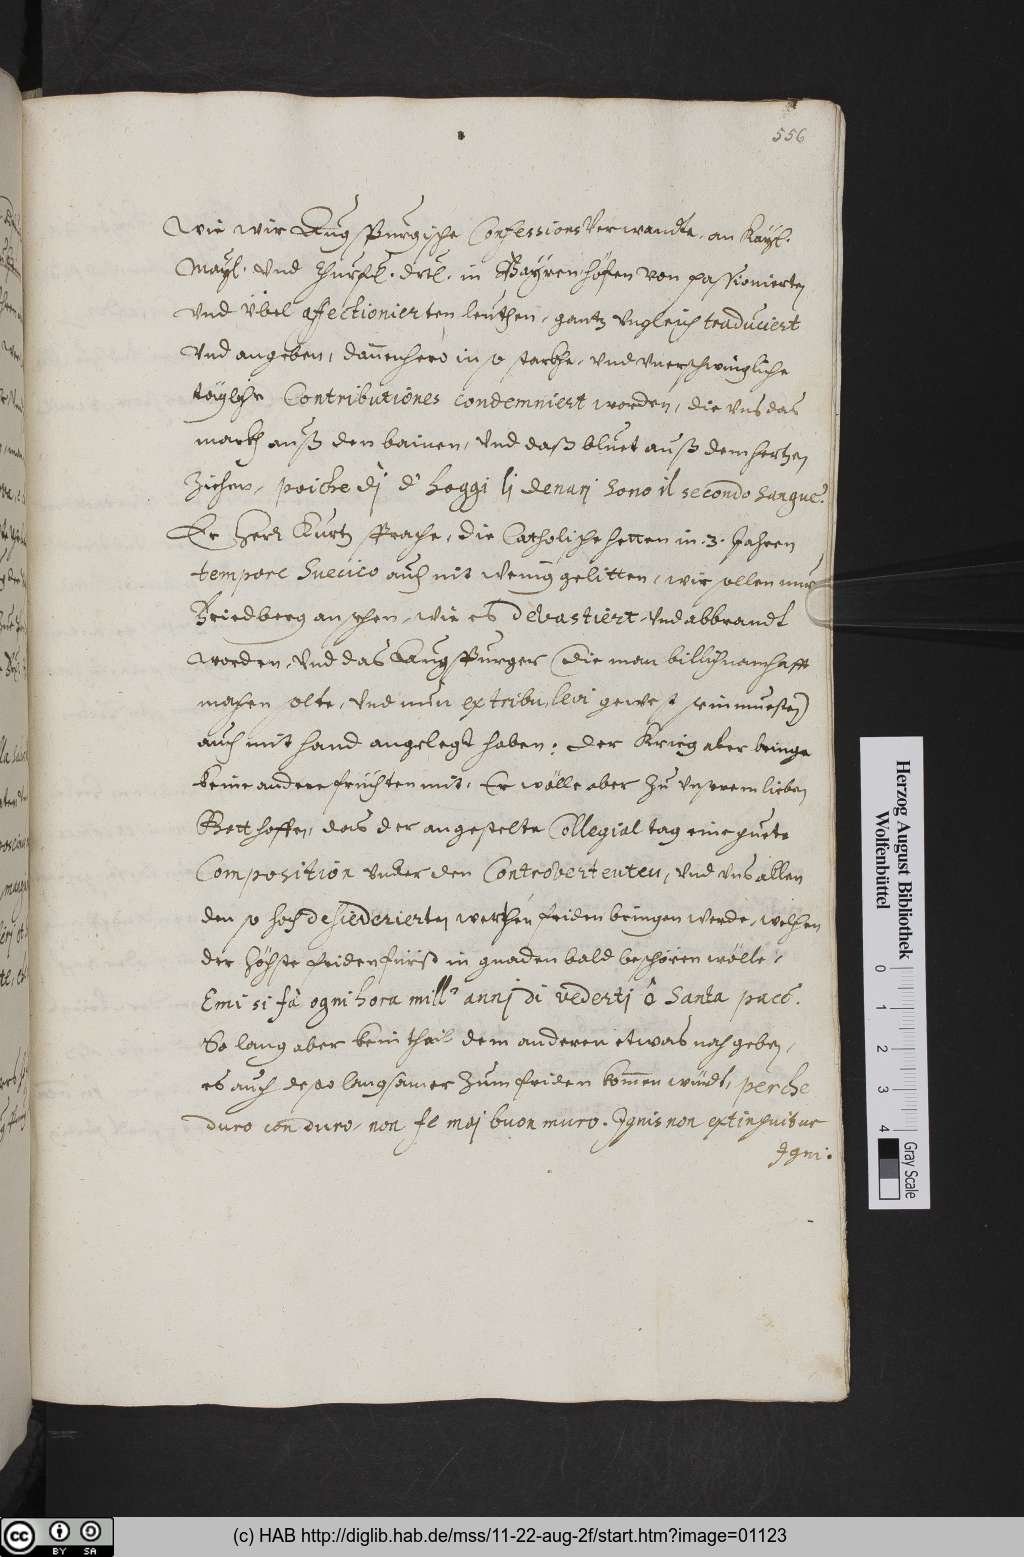 556
wie wir Augspurgische Confessions Verwandte, an Kayß.
Mayß. Vnd Churfl. drtl. in Bayren höfen von passionierten
vnd übel affectionierten leuthen, gantz vngleich traduciert
vnd angeben, dannenhero in so starkhe, vnd vnerschwingliche
tägliche Contributiones condemniert worden, die vns das
markh auß den bainen, vnd daß bluet auß dem hertzen
Ziehen, poiche dj d' hoggi lj denarj sono il secondo sangue.
Er Herr Kurtz sprache, die Catholische hetten in .3. Jahren
tempore Suecico auch nit wenig gelitten, wir sollen nur
Friedberg ansehen, wie es devastiert, vnd abbrandt
worden, vnd das Augspurger (die man billich namhafft
machen solte, vnd nun ex tribu levi gewest sein muesten)
auch mit hand angelegt haben: der Krieg aber bringe
keine andere früchten mit, Er wölle aber Zu vnserem lieben
Gott hoffen, das der angestelte Collegial tag eine guete
Composition vnder den Controvertenten, vnd vns allen
den so hoch desiderierten werthen friden bringen werde, welchen
der höchste fridenfürst in gnaden bald beschören wölle,
E mi si fà ogni hora mill' annj di vedertj ô Santa pace.
So lang aber kein theil dem anderen etwas nachgeben,
es auch desto langsamer Zum friden kommen würdt, perche
duro con duro, non fe maj buon muro. Ignis non extinguitur
Igni.
Herzog August Bibliothek
Wolfenbüttel
0 1 2 3 4
Gray Scale
cc BY SA
(c) HAB http://diglib.hab.de/mss/11-22-aug-2f/start.htm?image=01123